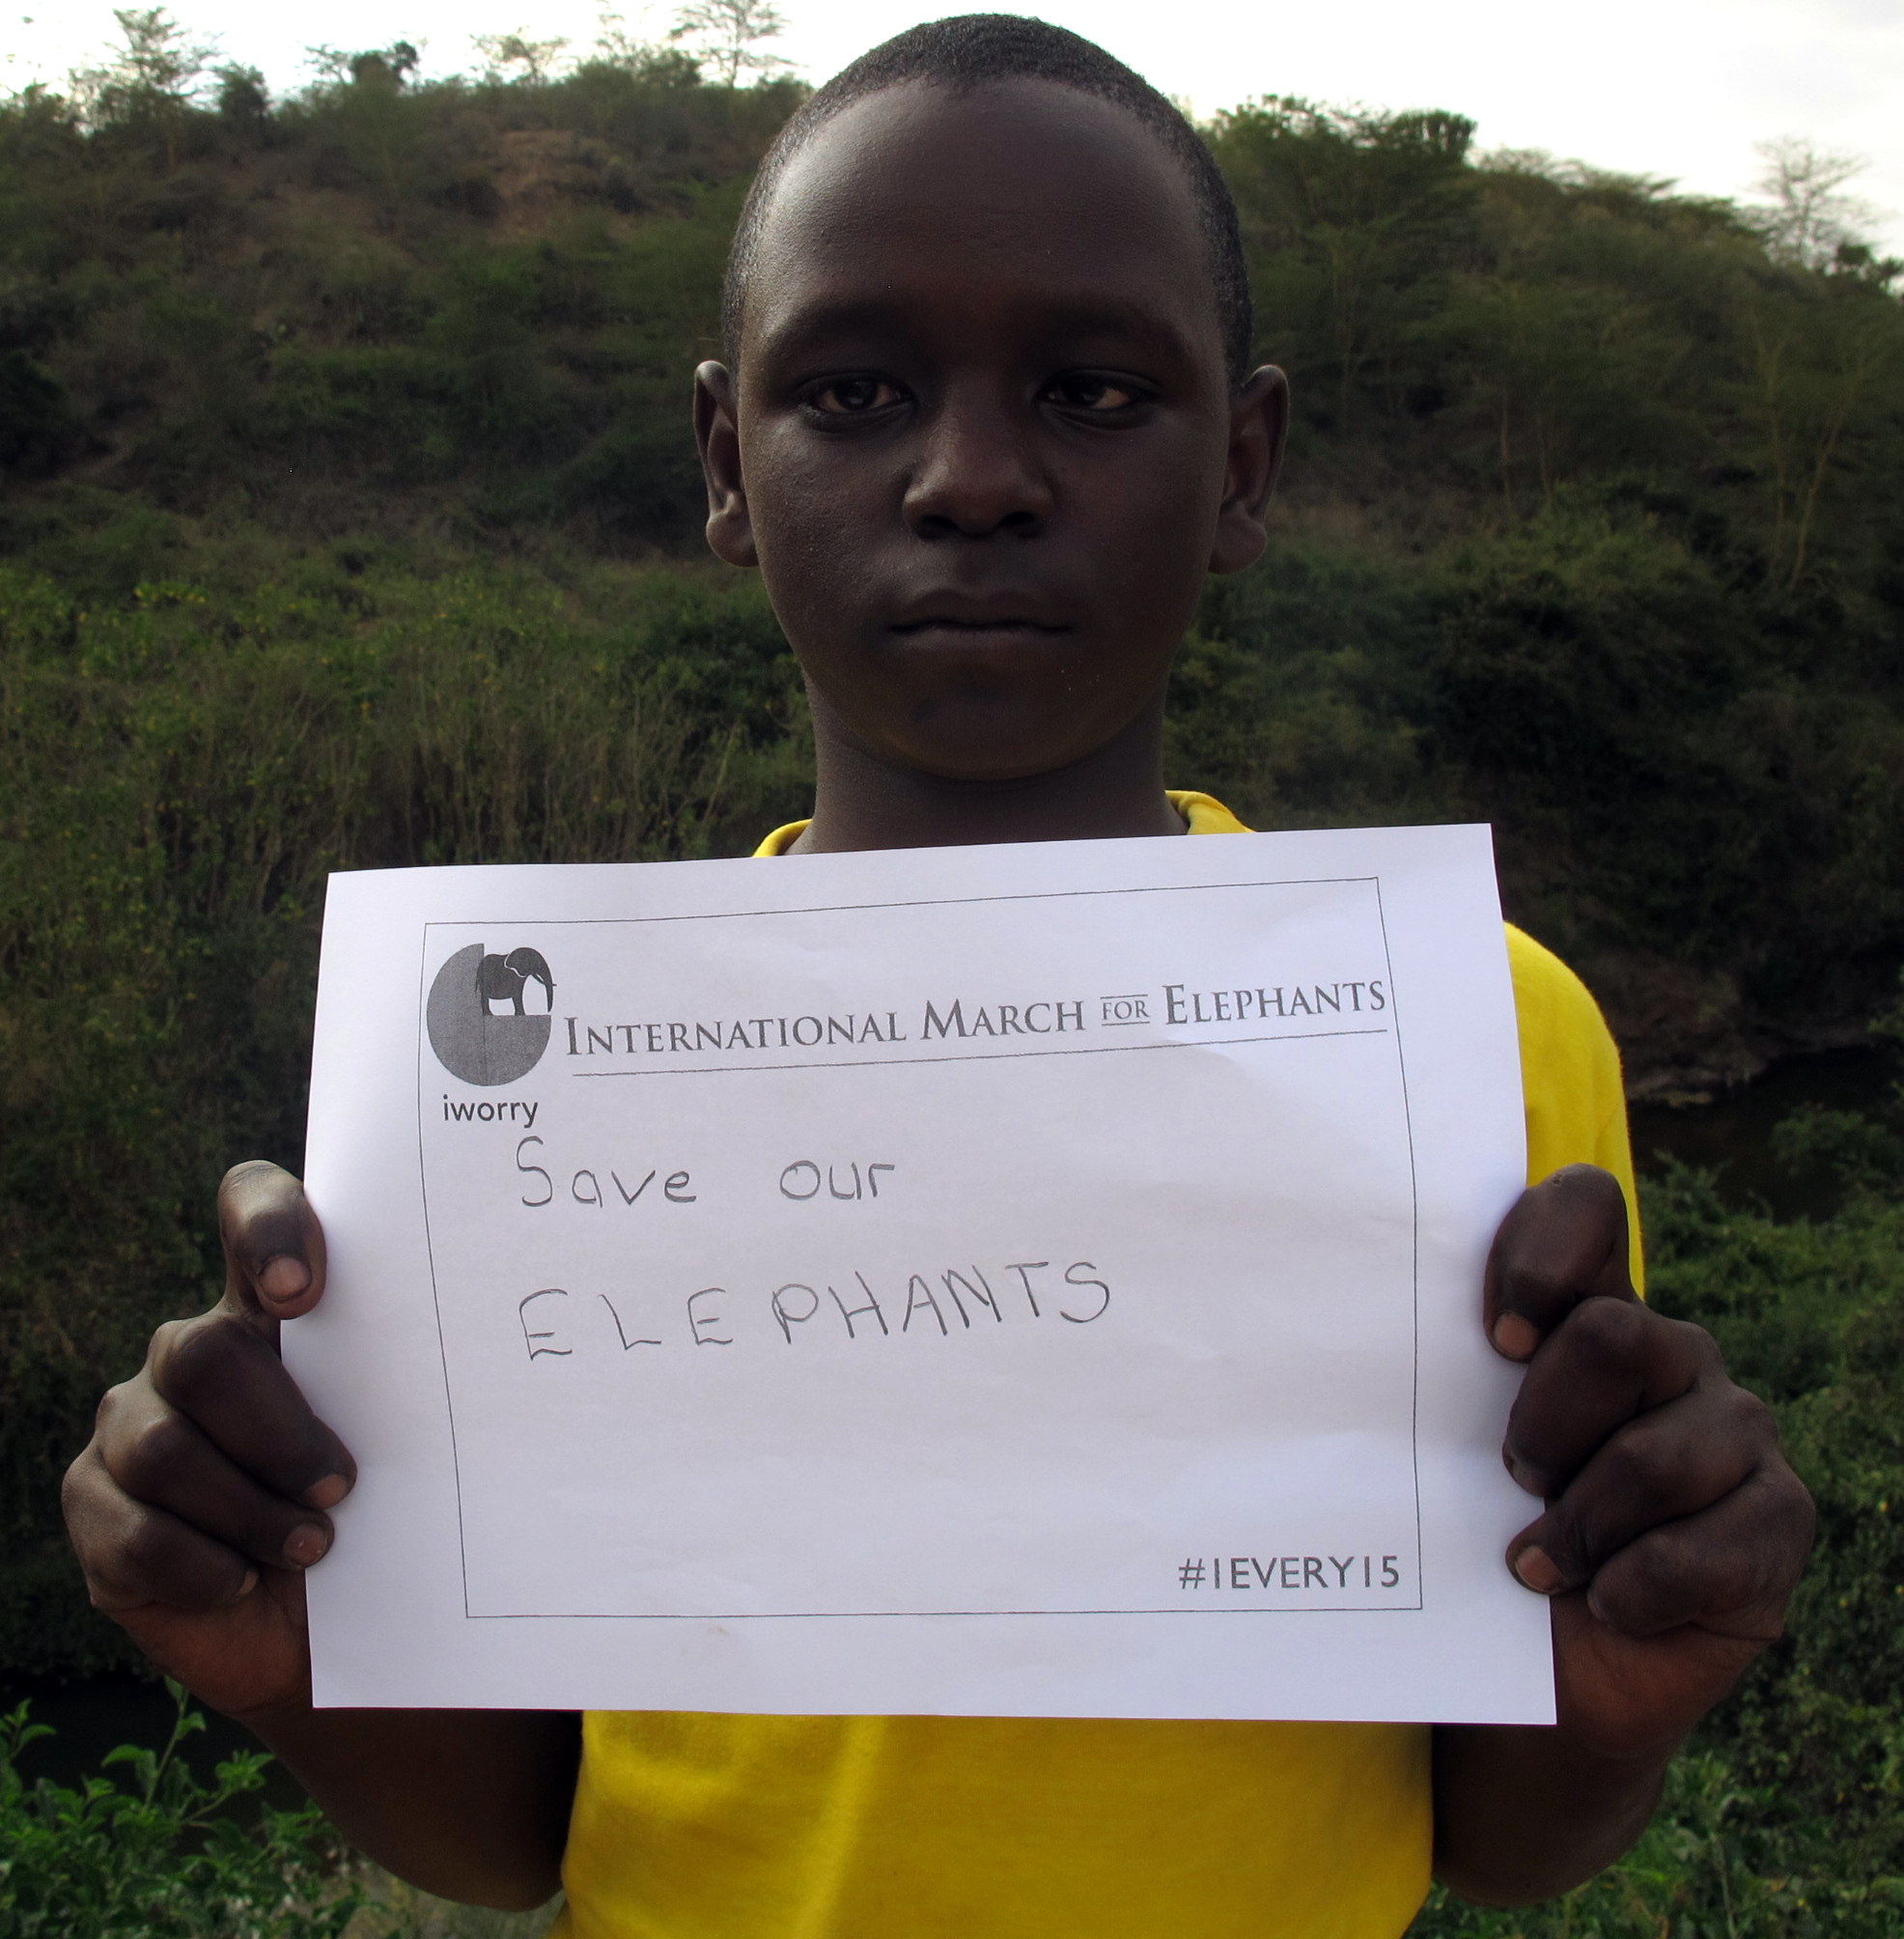 INTERNATIONAL MARCH FOR ELEPHANTS
iworry
Save our
ELEPHANTS
#1EVERY15